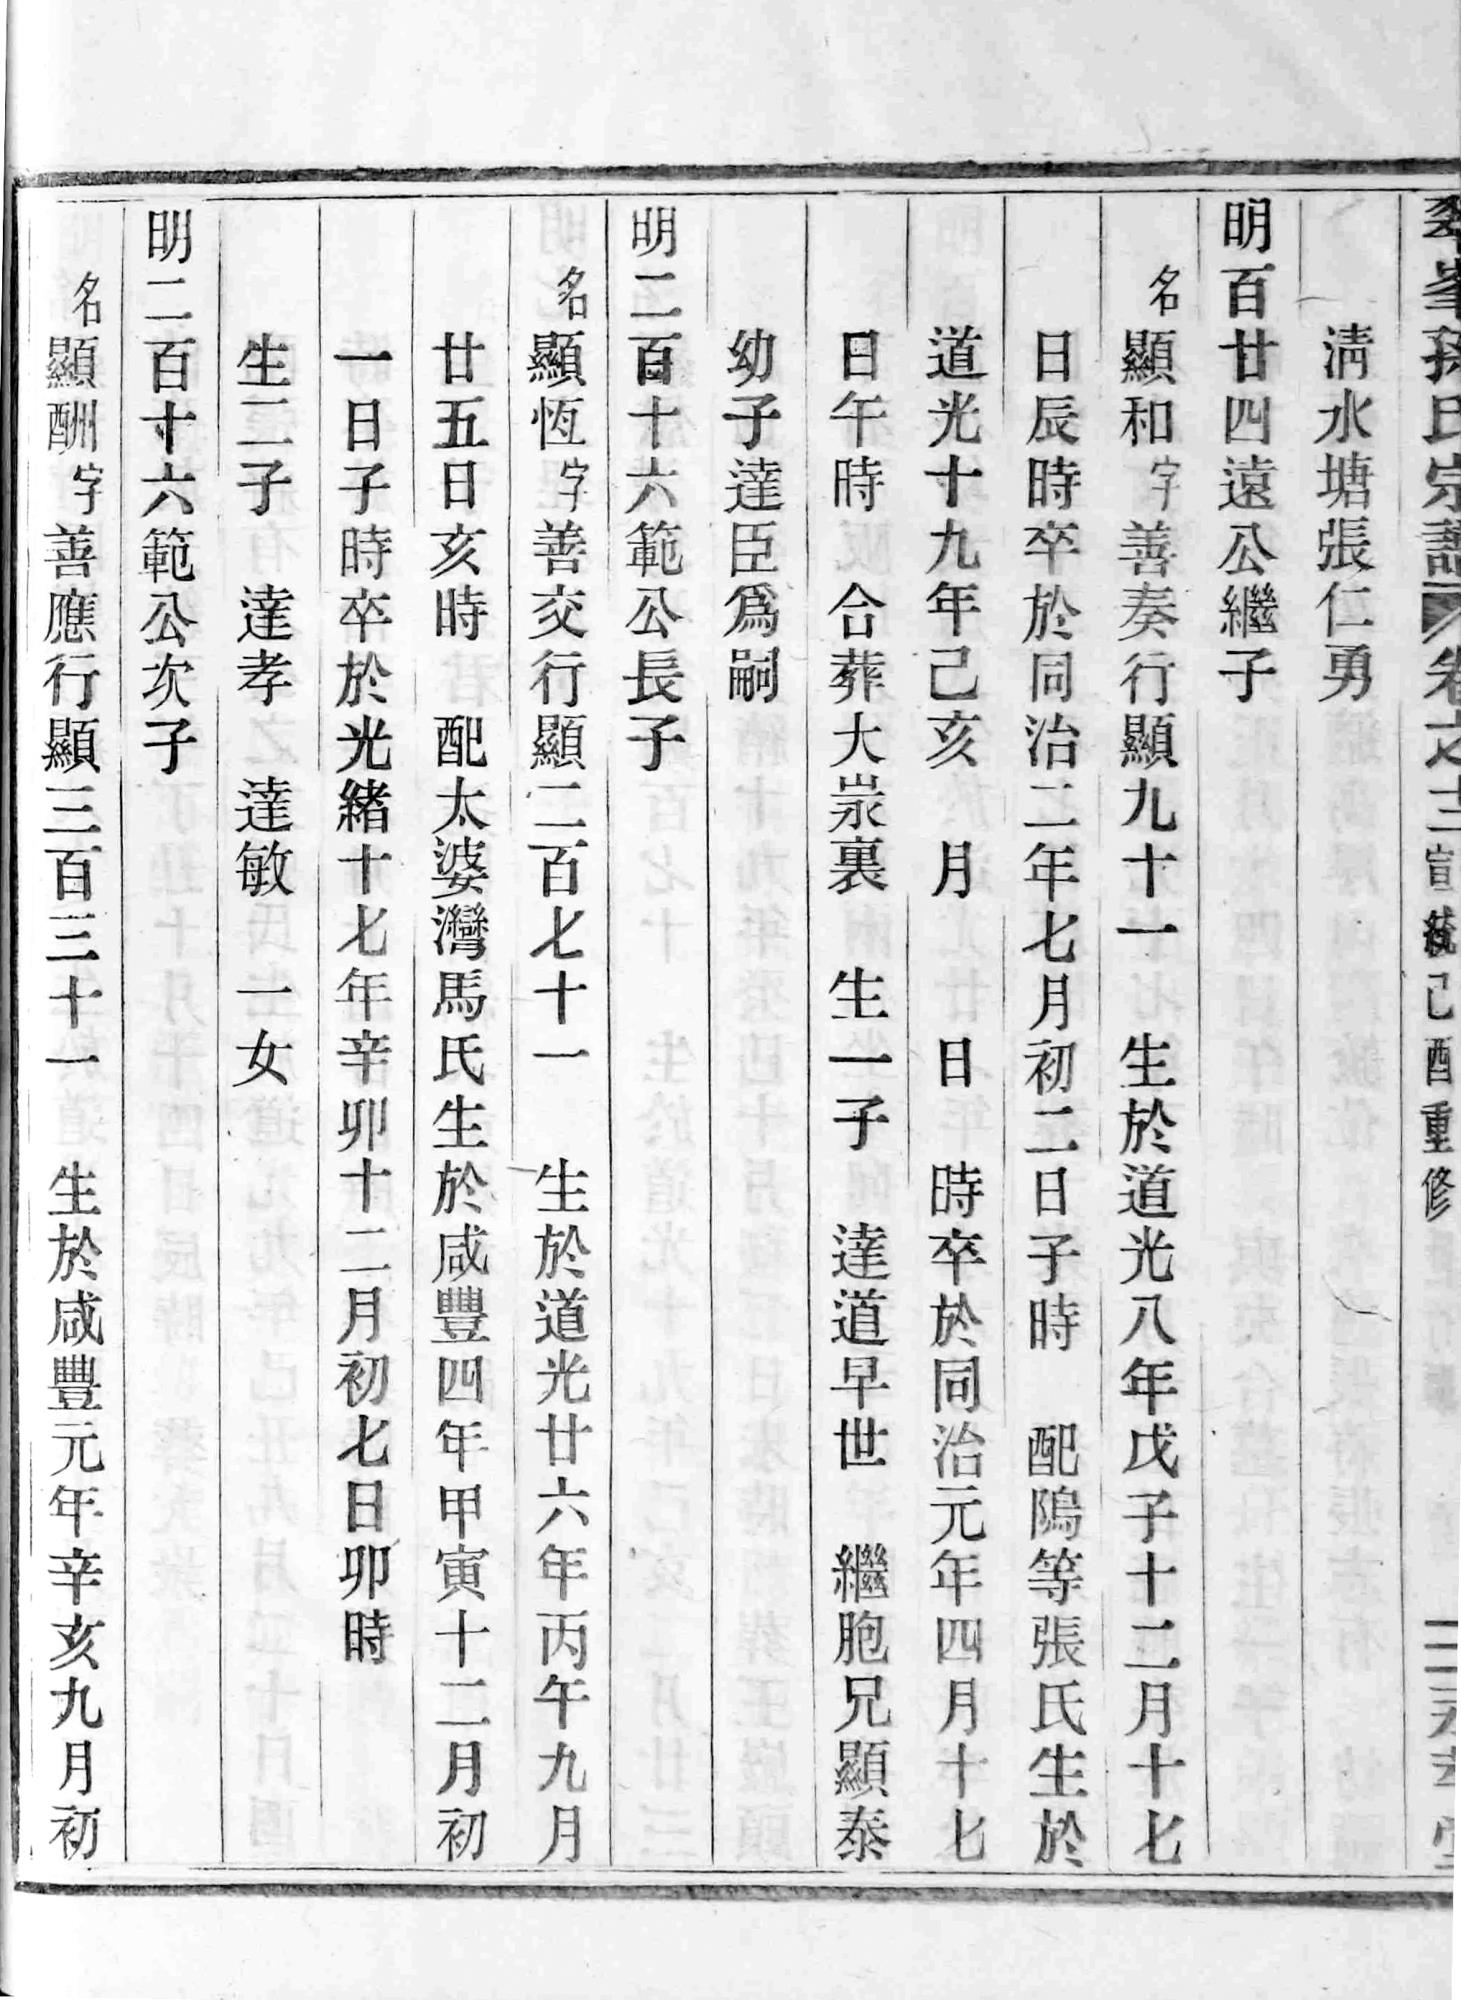 翠峯孫氏宗譜 卷之十二 宣統己酉重修
淸水塘張仁勇
明百廿四遠公繼子
名顯和字善奏行顯九十一 生於道光八年戊子十二月十七
日辰時卒於同治二年七月初二日子時 配隖等張氏生於
道光十九年己亥 月 日 時卒於同治元年四月十七
日午時 合葬大岽裏 生一子 達道早世 繼胞兄顯泰
幼子達臣爲嗣
明二百十六範公長子
名顯恆字善交行顯二百七十一 生於道光廿六年丙午九月
廿五日亥時 配太婆灣馬氏生於咸豐四年甲寅十二月初
一日子時卒於光緒十七年辛卯十二月初七日卯時
生二子 達孝 達敏 一女
明二百十六範公次子
名顯酬字善應行顯三百三十一 生於咸豐元年辛亥九月初